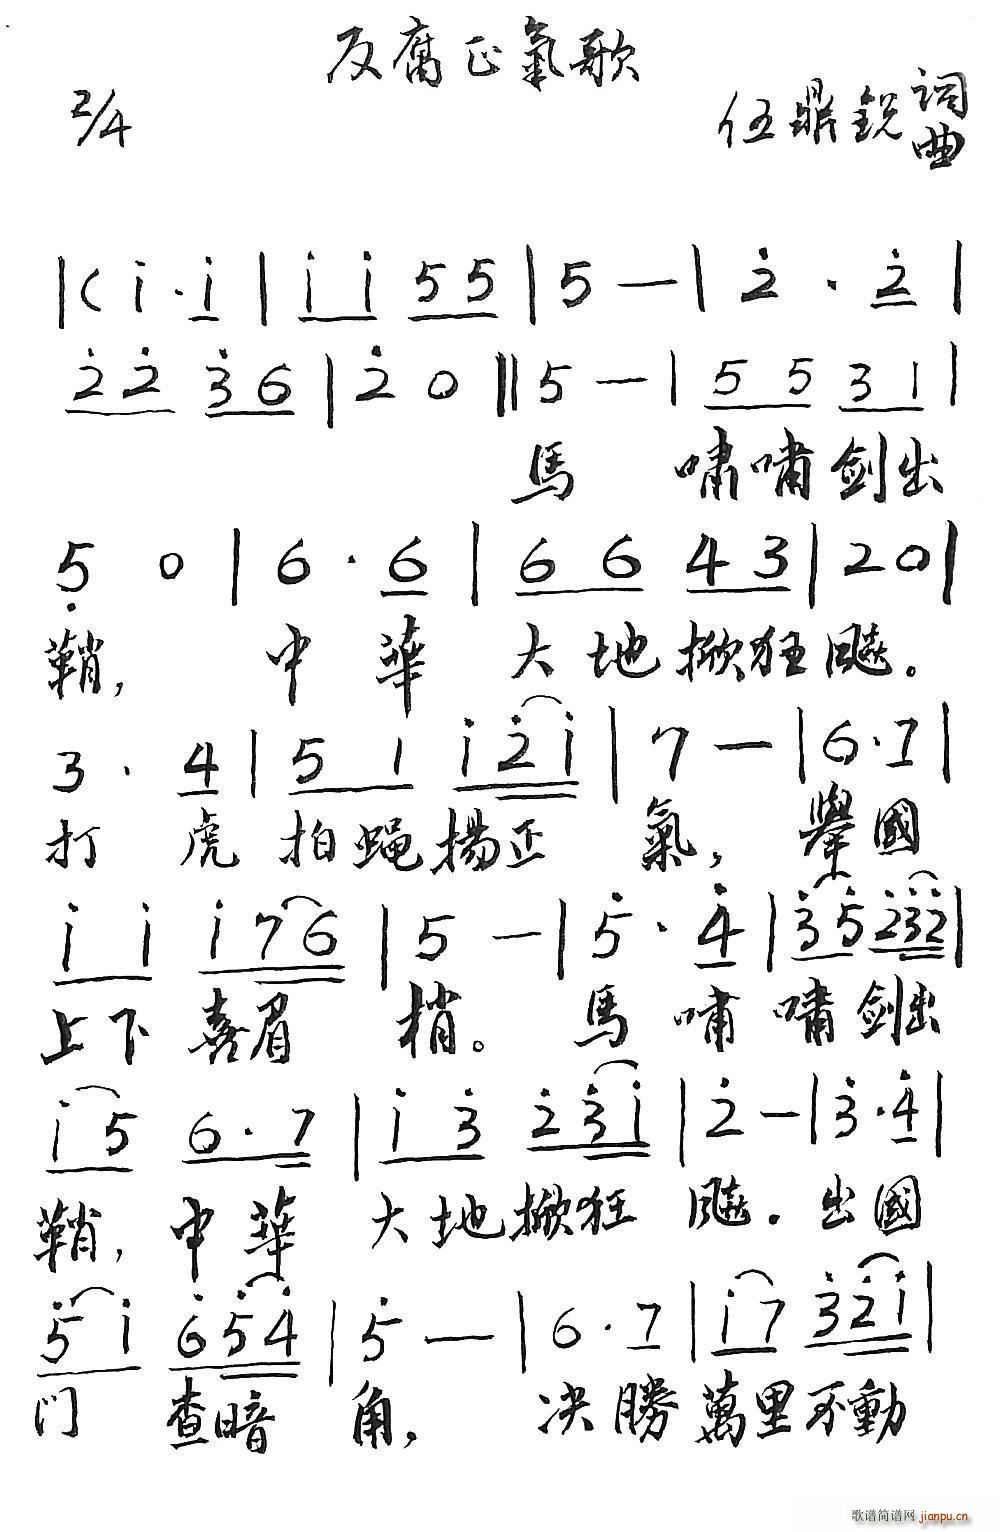 反腐正氣歌
2/4
伍鼎銳 詞
曲
|( i̇ · i̇ | i̇ i̇ 5 5 | 5 — | 2̇ · 2̇ |
2̇ 2̇ 3̇ 6 | 2̇ 0 || 5 — | 5 5 3 1 |
馬 嘯嘯剑出
5̣ 0 | 6 · 6 | 6 6 4 3 | 2 0 |
鞘, 中華 大地掀狂飈。
3 · 4 | 5 1 i̇ 2̇ i̇ | 7 — | 6 · 7 |
打虎拍蝇揚正 氣, 舉國
i̇ i̇ i̇ 7 6 | 5 — | 5̇ · 4̇ | 3̇ 5̇ 2̇ 3̇ 2̇ |
上下喜眉 梢。 馬嘯 嘯剑出
i̇ 5 6 · 7 | i̇ 3̇ 2̇ 3̇ i̇ | 2̇ — | 3̇ · 4̇ |
鞘, 中華 大地掀狂 飈. 出國
5̇ i̇ 6̇ 5̇ 4̇ | 5̇ — | 6 · 7 | i̇ 7 3̇ 2̇ i̇ |
门 查暗 角, 决勝 萬里不動
歌谱简谱网 jianpu.cn